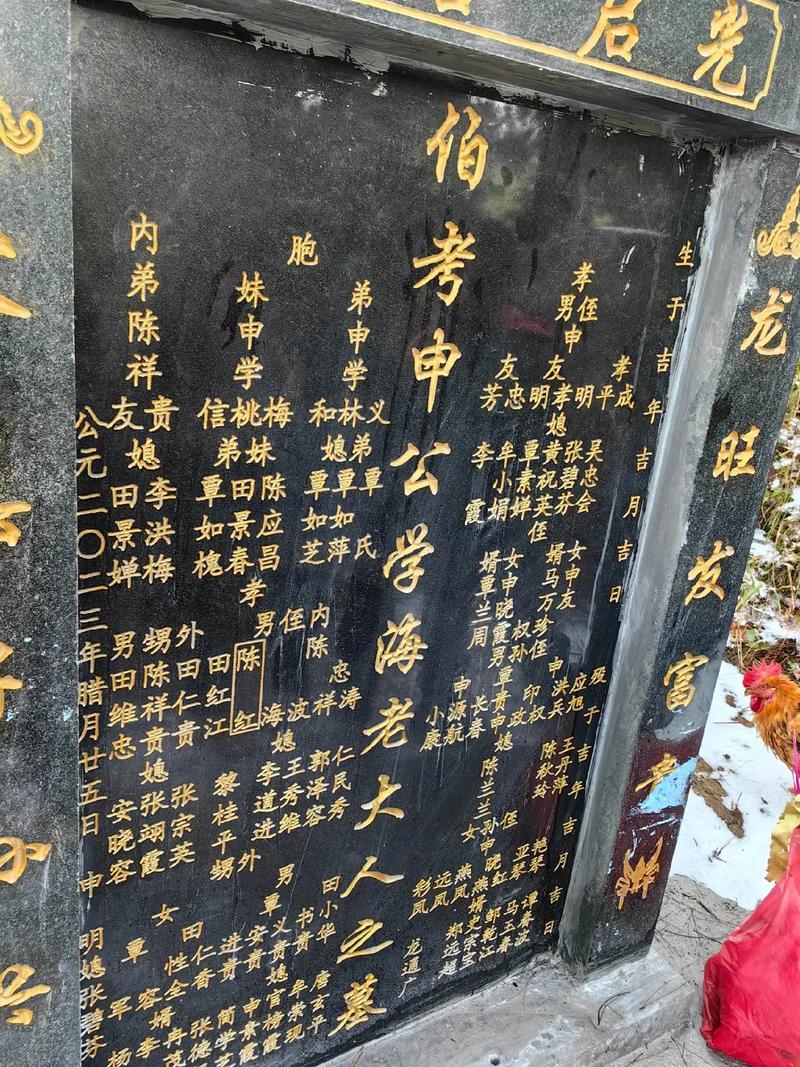 光启
龙旺发富
生于吉年吉月吉日
殁于吉年吉月吉日
孝侄男申
孝成
明平
友明
友忠芳
孝媳
吴忠会
张碧芬
黄祝英
覃素婵
牟小娟
李霞
侄女申友珍
婿马万
侄女申晓霞
婿覃兰周
侄孙男申
应旭
洪兵
印权
权政
贵
长春
源航
小康
孙媳
王丹萍
陈秋玲
陈兰兰
侄孙女申
艳琴
亚琴
晓红
燕
燕凤
远凤
彩凤
婿
谭春波
马玉春
邹乾江
史宗宝
郑远超
龙通广
伯考申公学海老大人之墓
胞
弟申学
义
林
和
弟媳
覃氏
覃如萍
覃如芝
妹申学
梅
桃
信
妹弟
陈应昌
田景春
覃如槐
内弟陈祥
贵
友
媳
李洪梅
田景婵
孝男
内侄陈
忠涛
祥
波
海
陈红
田红江
媳
仁民秀
郭泽容
王秀维
李道进
黎桂平
外甥男
田仁贵
陈祥贵
田维忠
媳
张宗英
张翊霞
安晓容
外甥男
田小华
覃
书贵
义贵
安贵
进贵
媳
唐玄平
牟荣现
官榜霞
申素霞
简学芝
女
田仁香
性全
覃容
军
婿
张德
冉茂
李
杨
公元二〇二三年腊月廿五日
申明媳张碧芬